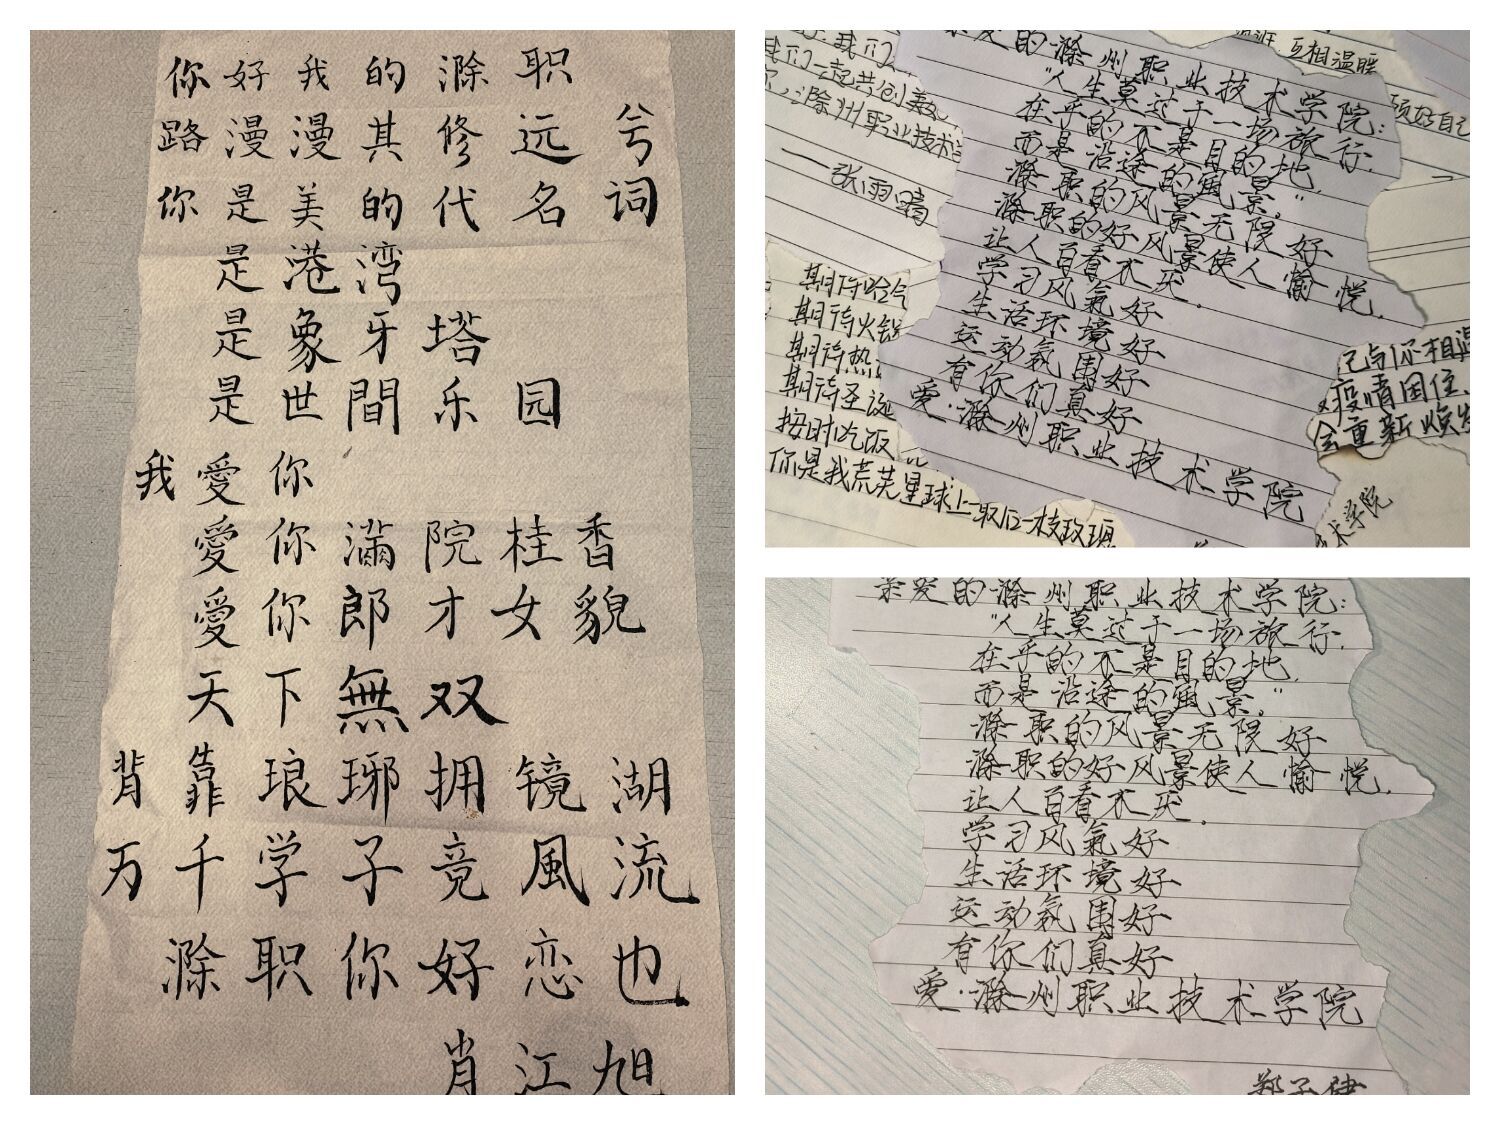 你好我的滁职
路漫漫其修远兮
你是美的代名词
是港湾
是象牙塔
是世間乐园
我愛你
愛你滿院桂香
愛你郎才女貌
天下無双
背靠琅琊拥镜湖
万千学子竟風流
滁职你好恋也
肖江旭
亲爱的滁州职业技术学院:
"人生莫过于一场旅行,
在乎的不是目的地,
而是沿途的風景。"
滁职的风景无限好
滁职的好风景使人愉悦,
让人百看不厌.
学习风氣好
生活环境好
运动氛围好
有你们真好
爱·滁州职业技术学院
互相温暖
我们一起共创美好
滁州职业技术
——张雨晴
期待哈气
期待火锅
期待热
期待圣诞
按时吃饭
你是我荒芜星球上一枝玫瑰
顾好自己
己与你相遇
疫情困住
会重新焕发
术学院
亲爱的滁州职业技术学院:
"人生莫过于一场旅行,
在乎的不是目的地,
而是沿途的風景。"
滁职的风景无限好
滁职的好风景使人愉悦,
让人百看不厌.
学习风氣好
生活环境好
运动氛围好
有你们真好
爱·滁州职业技术学院
郑子健